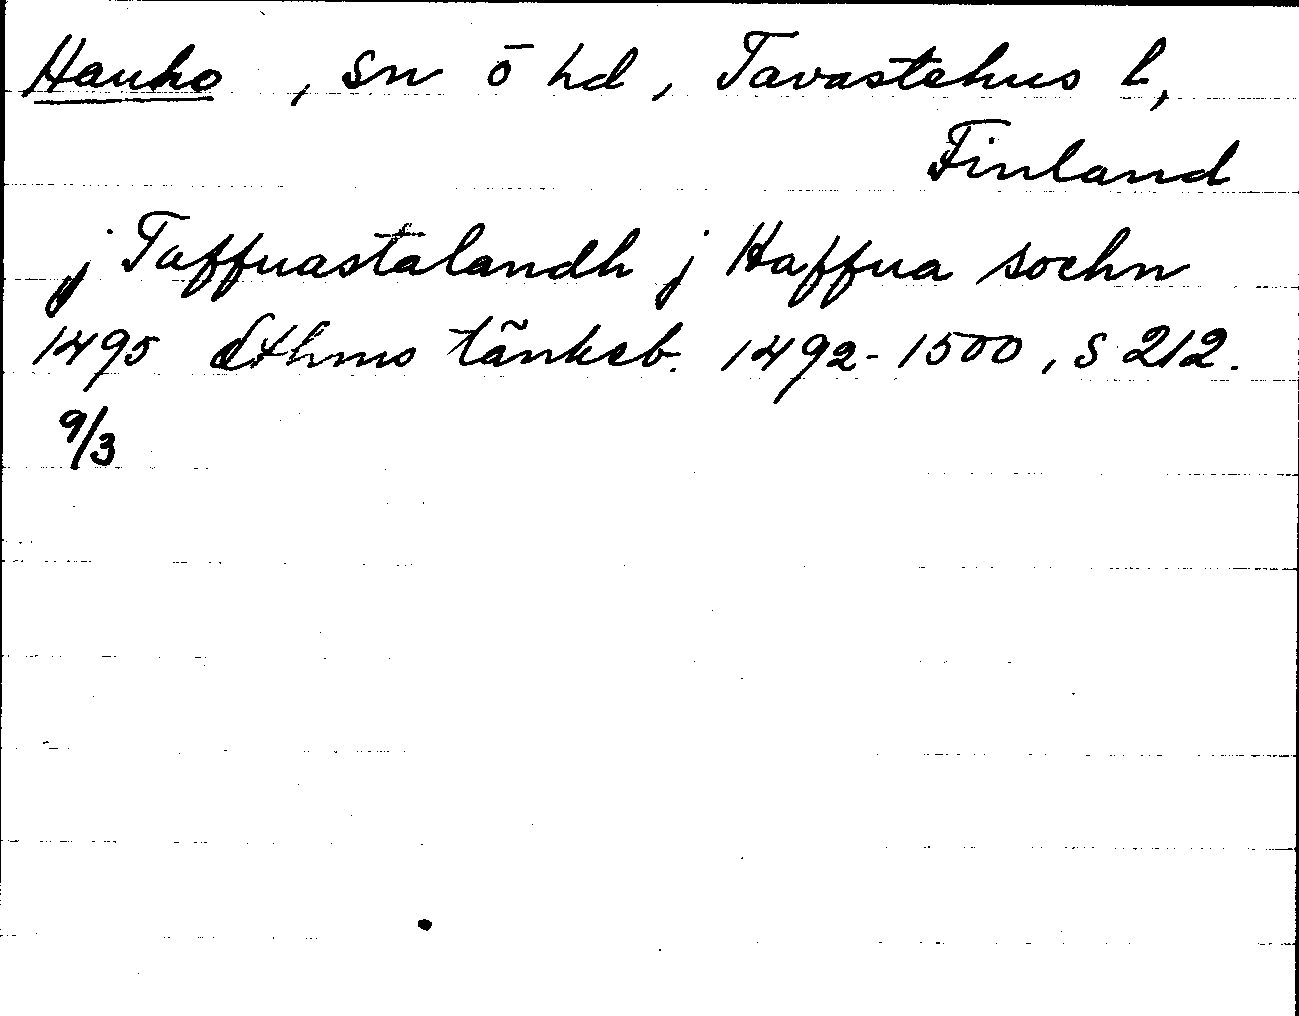 Hauho, sn ö hd, Tavastehus l,
Finland
j Taffuastalandh j Haffua sochn
1495 Sthms tänkeb. 1492-1500, s 212.
9/3